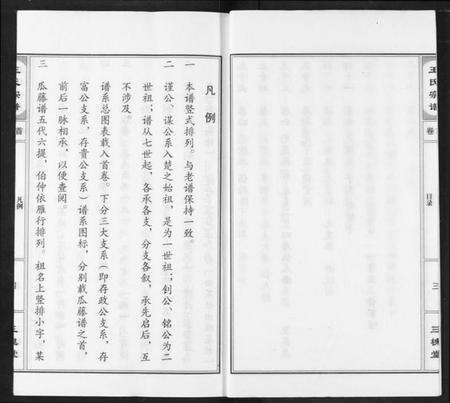 王氏宗谱
卷
目录
三
三槐堂
凡例
一 本谱竖式排列。与老谱保持一致。
二 谨公、谋公系入楚之始祖，是为一世祖；钊公、铭公为二
世祖；谱从七世起，各承各支，分支各叙，承先启后，互
不涉及。
谱系总图表载入首卷。下分三大支系（即存政公支系，存
富公支系，存贵公支系）谱系图标，分别载瓜藤谱之首，
前后一脉相承，以便查阅。
三 瓜藤谱五代六提，伯仲依雁行排列，祖名上竖排小字，某
首
凡例